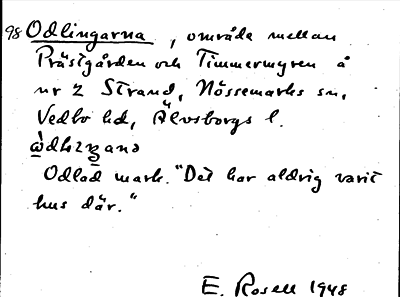 98 Odlingarna, område mellan
Prästgården och Timmermyren å
nr 2 Strand, Nössemarks sn,
Vedbo hd, Älvsborgs l.
Odlad mark. "Det har aldrig varit
hus där."
E. Rosell 1948